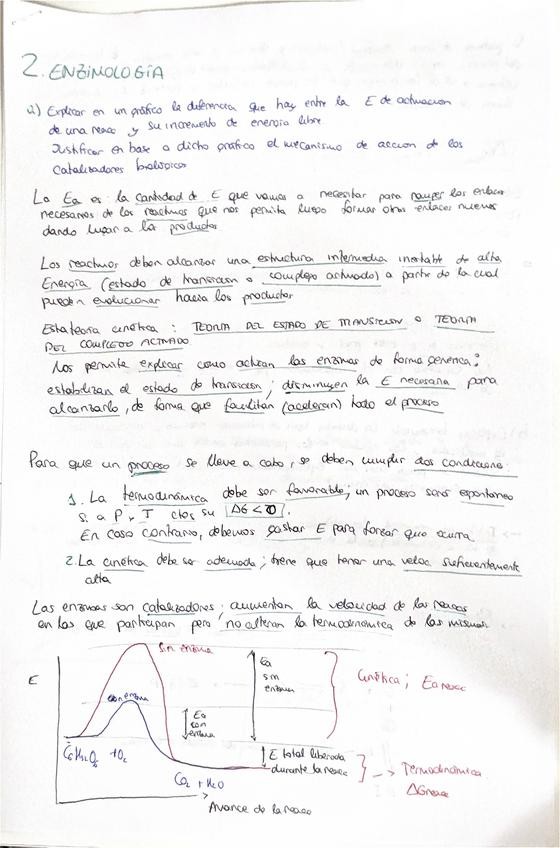 2. ENZIMOLOGÍA
a) Explicar en un gráfico la diferencia que hay entre la E de activación
de una reacc y su incremento de energía libre.
Justificar en base a dicho gráfico el mecanismo de acción de los
catalizadores biológicos
La Ea es la cantidad de E que vamos a necesitar para romper los enlaces
necesarios de los reactivos que nos permita luego formar otros enlaces nuevos
dando lugar a los productos
Los reactivos deben alcanzar una estructura intermedia inestable de alta
Energía (estado de transición o complejo activado) a partir de la cual
pueden evolucionar hacia los productos
Esta teoría cinética: TEORIA DEL ESTADO DE TRANSICION O TEORIA
DEL COMPLEJO ACTIVADO
Nos permite explicar como actúan las enzimas de forma genérica:
estabilizan el estado de transición; disminuyen la E necesaria para
alcanzarlo, de forma que facilitan (aceleran) todo el proceso
Para que un proceso se lleve a cabo, se deben cumplir dos condiciones:
1. La termodinámica debe ser favorable, un proceso será espontaneo
si a P y T ctes su ΔG < 0.
En caso contrario, debemos gastar E para forzar que ocurra
2. La cinética debe ser adecuada; tiene que tener una veloc. suficientemente
alta
Las enzimas son catalizadores; aumentan la velocidad de las reacc
en las que participan pero no alteran la termodinámica de las mismas
E
Sin enzima
con enzima
Ea
con
enzima
Ea
sin
enzima
Cinética; Ea reacc
C6H12O6 + O2
CO2 + H2O
E total liberada
durante la reacc
Termodinámica
ΔG reacc
Avance de la reacc